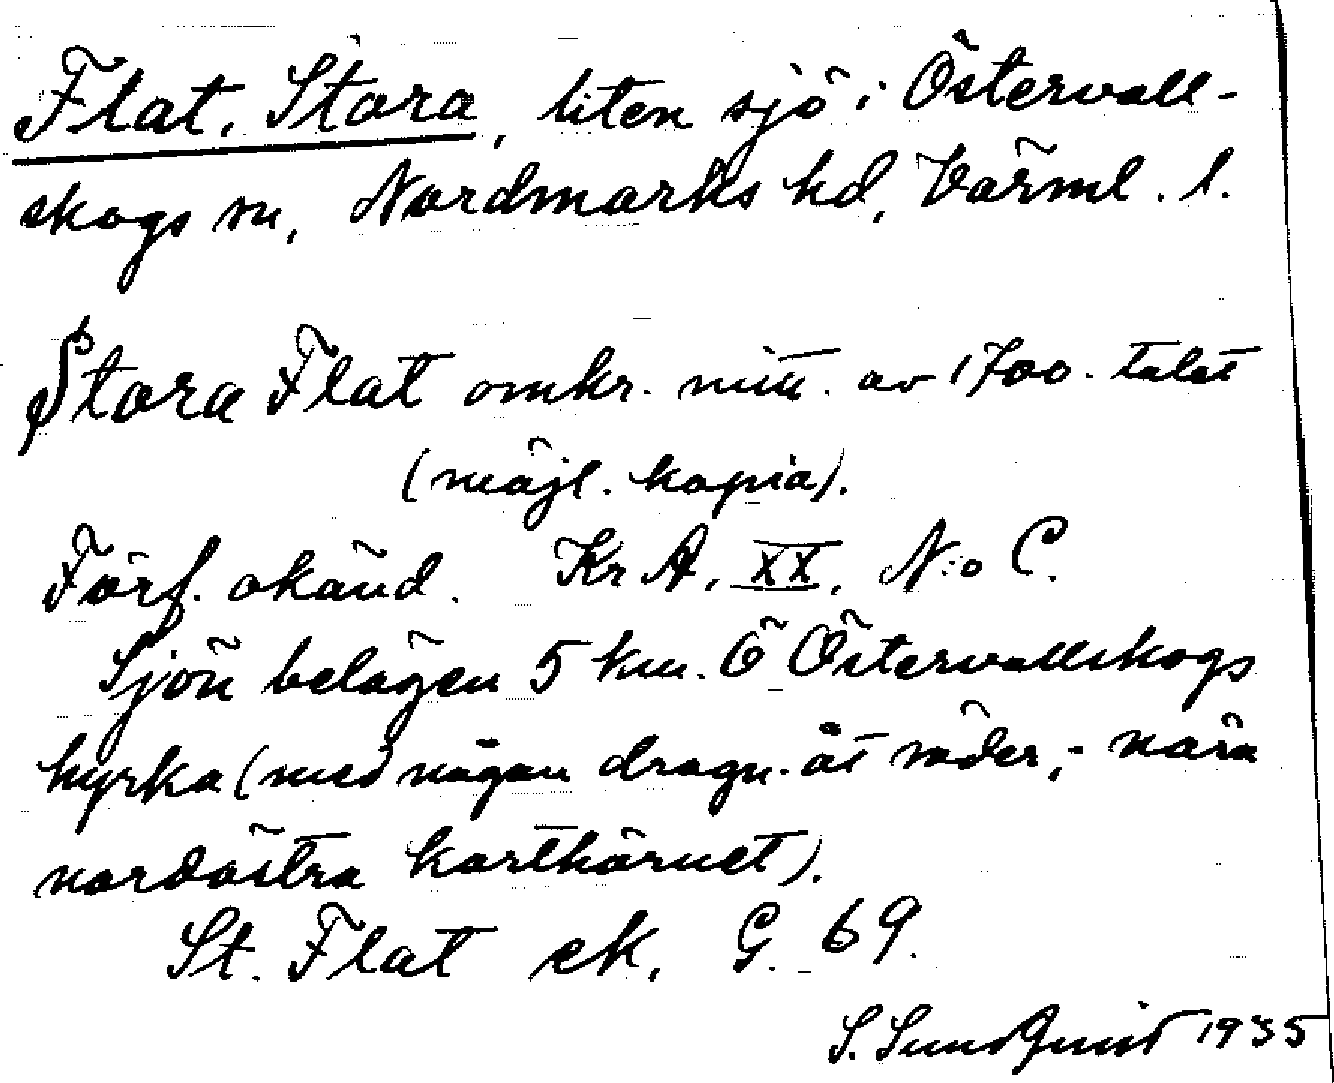 Flat, Stora, liten sjö i Östervall-
skogs sn, Nordmarks hd, Värml. l.
Stora Flat omkr. mitt. av 1700-talet
(möjl. kopia).
Förf. okänd. Kr A, XX, N:o C.
Sjön belägen 5 km. Ö Östervallskogs
kyrka (med någon dragn. åt söder, - nära
nordöstra karthörnet).
St. Flat ek. G. 69.
S. Sundquist 1935